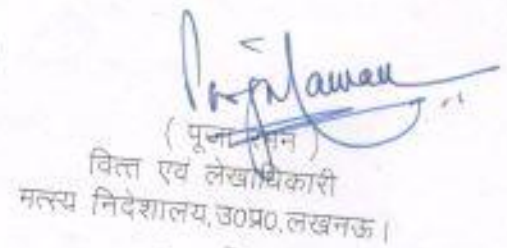 ( पूजा रमन )
वित्त एवं लेखाधिकारी
मत्स्य निदेशालय,उ०प्र०,लखनऊ।